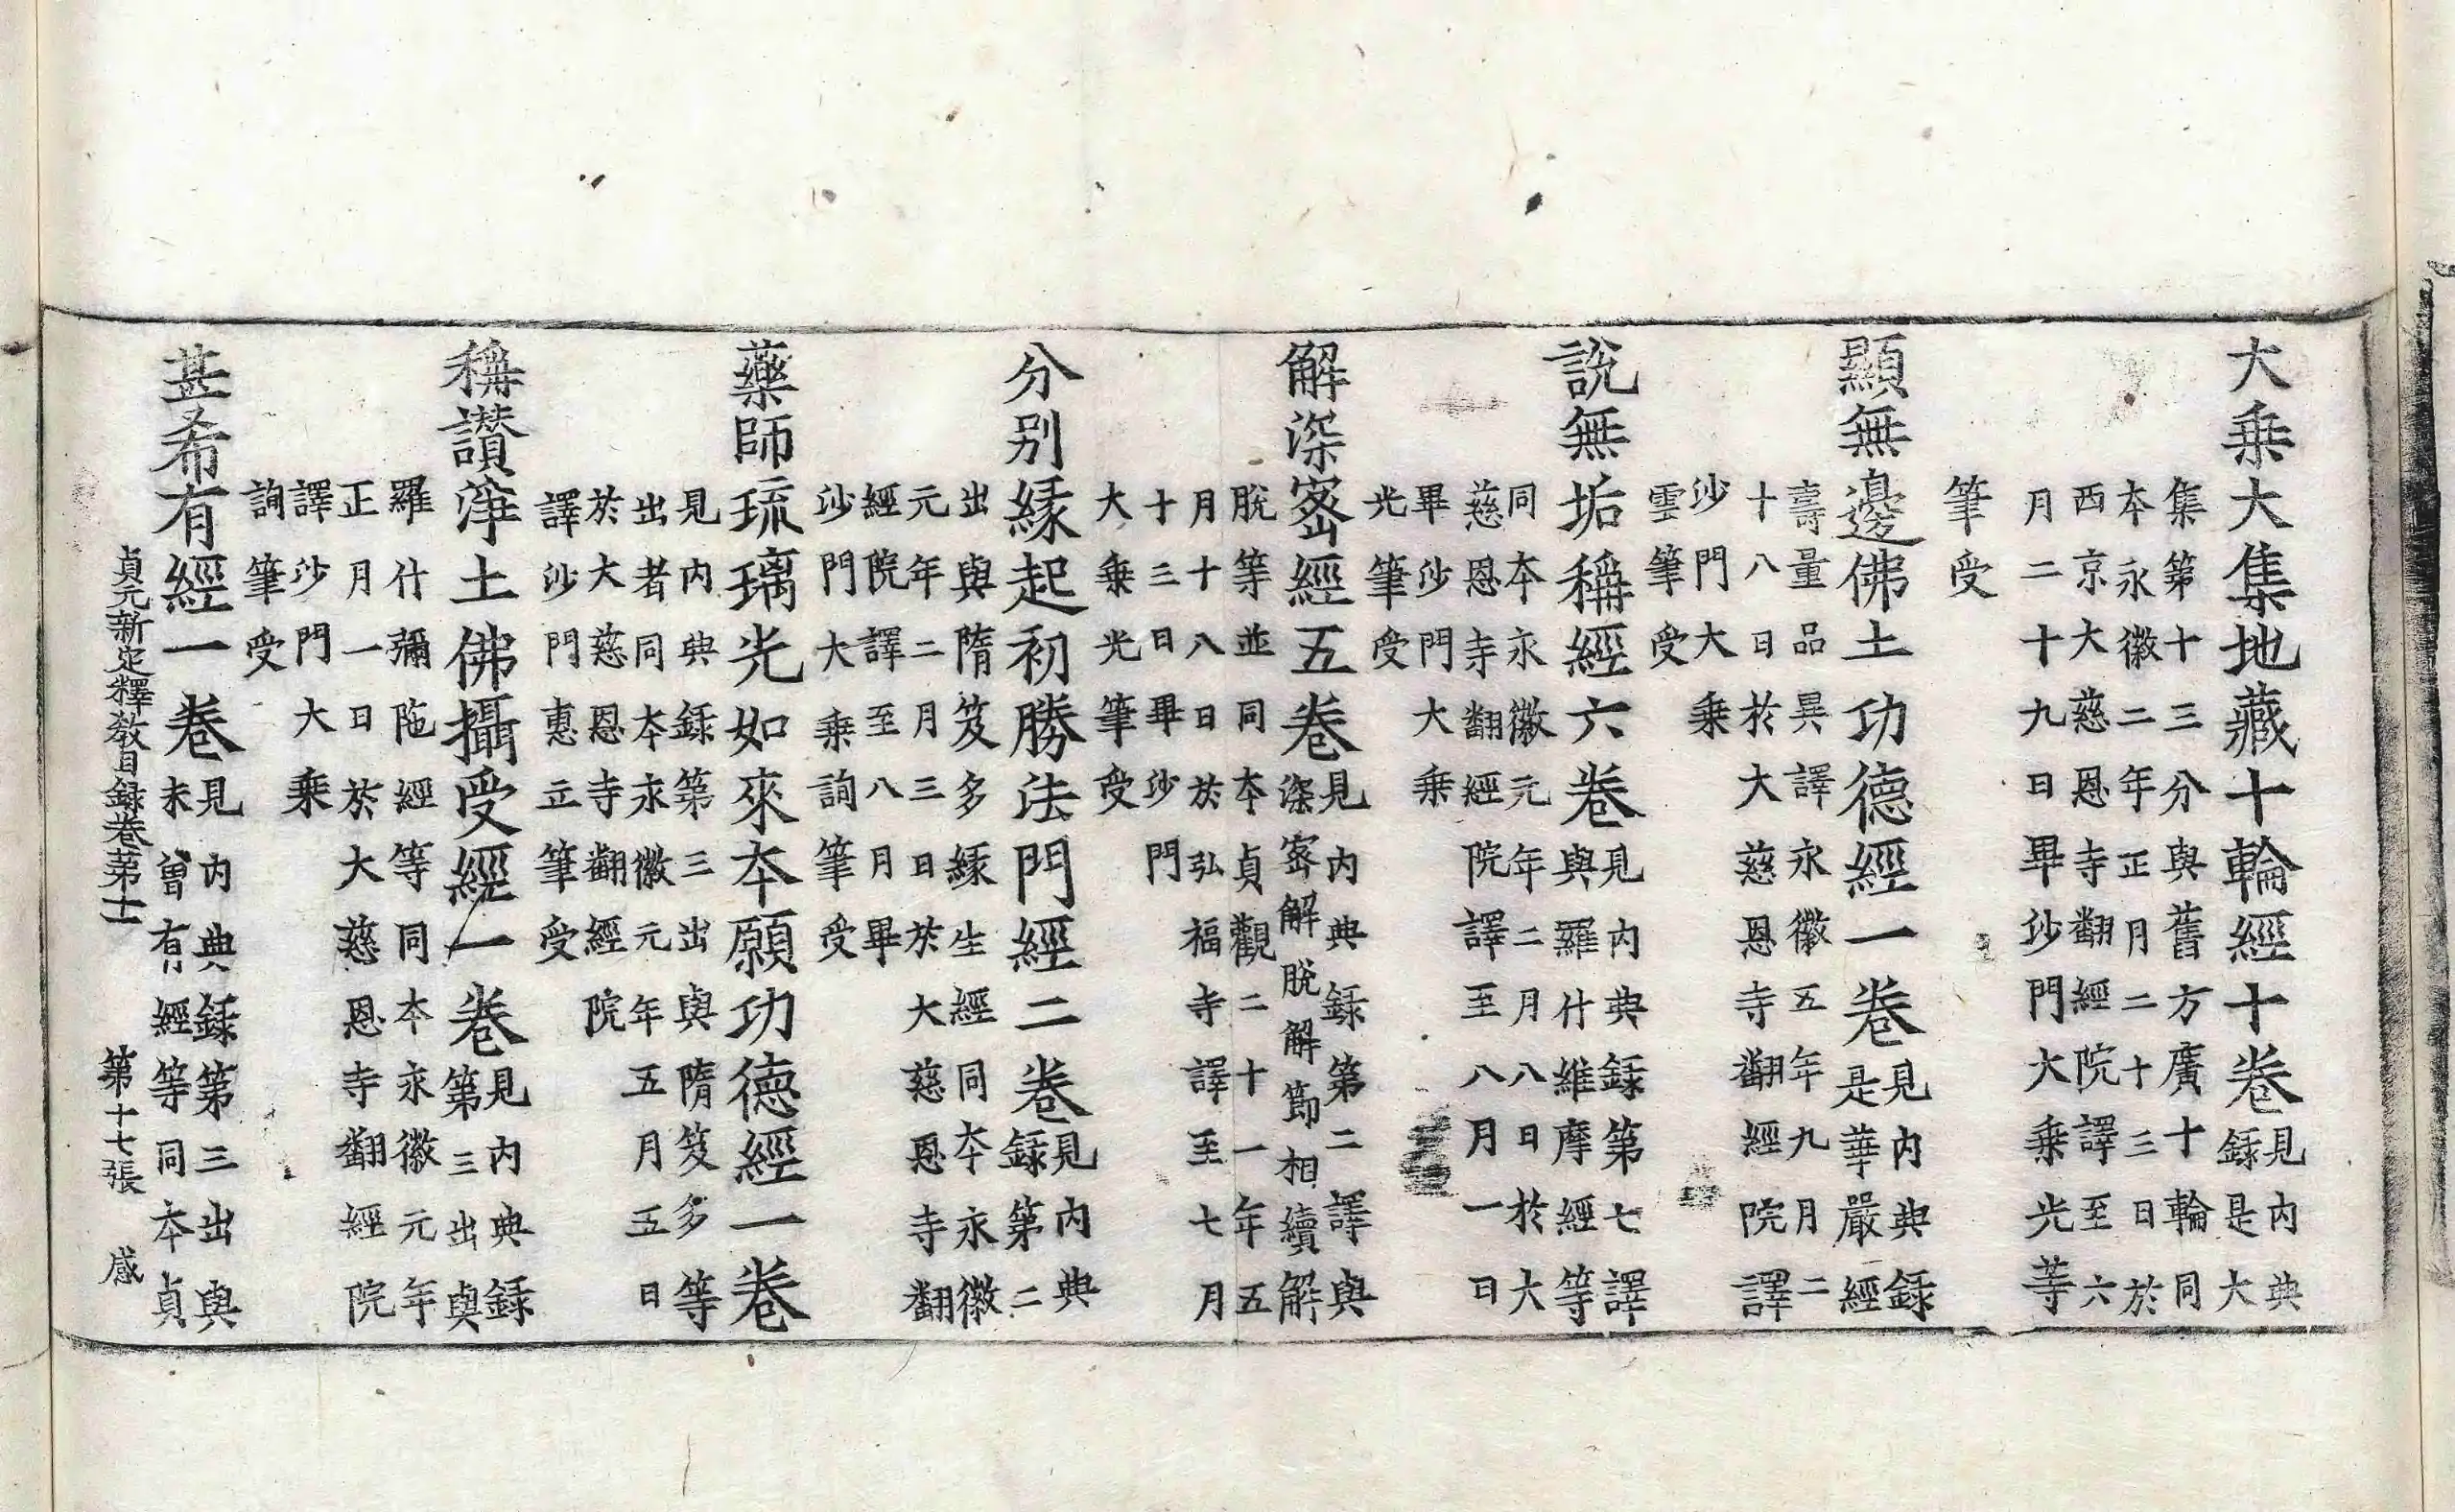 大乗大集地藏十輪經十卷見内典
録是大
集第十三分與舊方廣十輪同
本永徽二年正月二十三日於
西京大慈恩寺翻經院譯至六
月二十九日畢沙門大乗光等
筆受
顯無邊佛土功德經一卷見内典録
是華嚴經
壽量品異譯永徽五年九月二
十八日於大慈恩寺翻經院譯
沙門大乗
雲筆受
說無垢稱經六卷見内典録第七譯
與羅什維摩經等
同本永徽元年二月八日於大
慈恩寺翻經院譯至八月一日
畢沙門大乗
光筆受
解深密經五卷見内典録第二譯與
深密解脫解節相續解
脫等並同本貞觀二十一年五
月十八日於弘福寺譯至七月
十三日畢沙門
大乗光筆受
分别縁起初勝法門經二卷見内典
録第二
出與隋笈多縁生經同本永徽
元年二月三日於大慈恩寺翻
經院譯至八月畢
沙門大乗詢筆受
藥師琉璃光如來本願功德經一卷
見内典録第三出與隋笈多等
出者同本永徽元年五月五日
於大慈恩寺翻經院
譯沙門惠立筆受
稱讃淨土佛攝受經一卷見内典録
第三出與
羅什彌陁經等同本永徽元年
正月一日於大慈恩寺翻經院
譯沙門大乗
詢筆受
甚希有經一卷見内典録第三出與
未曾有經等同本貞
貞元新定釋教目録卷第十一 第十七張 感